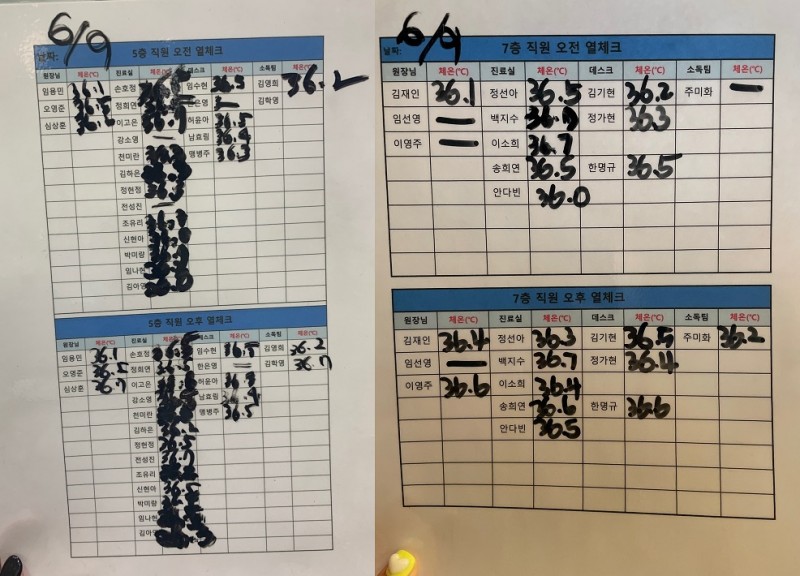 6/9
날짜: 5층 직원 오전 열체크
원장님 체온(℃) 진료실 체온(℃) 데스크 체온(℃) 소독팀 체온(℃)
임용민 36.1 손호정 임수현 36.3 김영희 36.2
오영준 36.5 정희연 한은영 ー 김학영
심상훈 36.6 이고은 36.7 허윤아 36.5
강소영 ー 남효림 36.4
천미란 36.3 맹병주 36.3
김하은
정현정 36.3
전성진 ー
조유리
신현마
박미랑
임나현
김아영
5층 직원 오후 열체크
원장님 체온(℃) 진료실 체온(℃) 데스크 체온(℃) 소독팀 체온(℃)
임용민 36.1 손호정 36.5 임수현 36.5 김영희 36.2
오영준 36.5 정희연 한은영 ー 김학영 36.7
심상훈 36.7 이고은 허윤아 36.3
강소영 남효림 36.4
천미란 맹병주 36.5
김하은
정현정 36.5
전성진
조유리
신현마
박미랑
임나현
김아영
6/9
날짜: 7층 직원 오전 열체크
원장님 체온(℃) 진료실 체온(℃) 데스크 체온(℃) 소독팀 체온(℃)
김재인 36.1 정선아 36.5 김기현 36.2 주미화 ー
임선영 ー 백지수 36.7 정가현 36.3
이영주 ー 이소희 36.7
송희연 36.5 한명규 36.5
안다빈 36.0
7층 직원 오후 열체크
원장님 체온(℃) 진료실 체온(℃) 데스크 체온(℃) 소독팀 체온(℃)
김재인 36.4 정선아 36.3 김기현 36.5 주미화 36.2
임선영 ー 백지수 36.7 정가현 36.4
이영주 36.6 이소희 36.4
송희연 36.6 한명규 36.6
안다빈 36.5